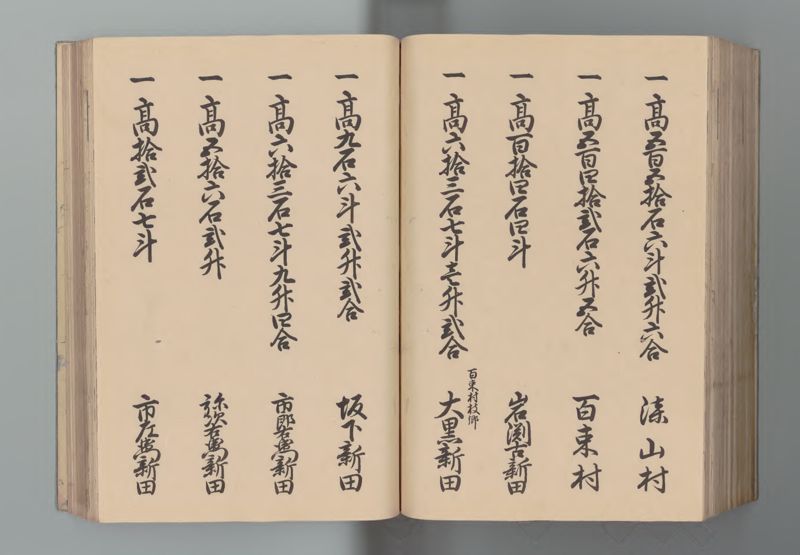 一 高五百五拾石六斗弐升六合 漆山村
一 高五百四拾弐石六升五合 百束村
一 高百拾四石四斗 岩渕古新田
一 高六拾三石七斗壱升弐合 百束村枝郷 大黒新田
一 高九石六斗弐升弐合 坂下新田
一 高六拾三石七斗九升四合 市郎右衛門新田
一 高五拾六石弐升 弥次右衛門新田
一 高拾弐石七斗 市左衛門新田